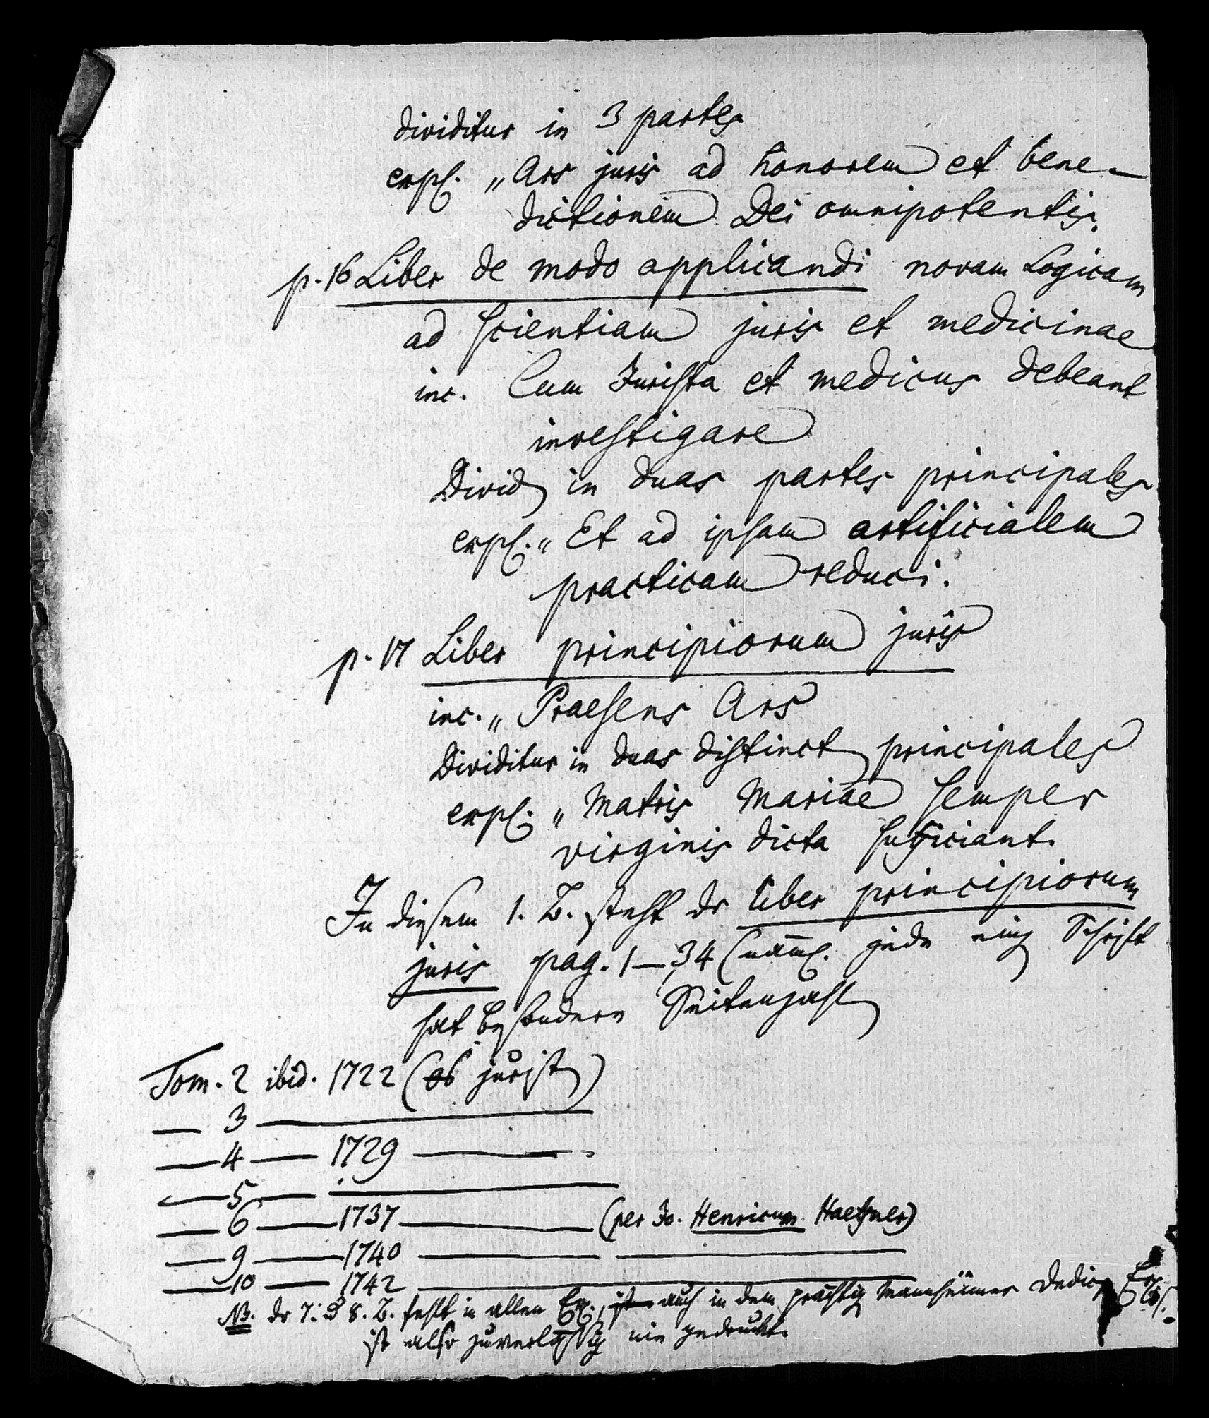 dividitur in 3 partes
expl. „Ars juris ad honorem et bene-
dictionem Dei omnipotentis.
p. 16 Liber de modo applicandi novam Logicam
ad scientiam juris et medicinae
inc. Cum Jurista et medicus debeant
investigare
Divid in duas partes principales
expl. „Et ad ipsam artificialem
practicam reduci.
p. 17 Liber principiorum juris
inc. „Praesens Ars
Dividitur in duas distinct principales
expl. „Matris Mariae semper
virginis dicta sufficiant.
In diesem 1. B. steht dr Liber principiorum
juris pag. 1—34 (näml. jede einz Schrift
hat besondere Seitenzahl
Tom. 2 ibid. 1722 (ob jurist)
— 3 —
— 4 — 1729 —
— 5 —
— 6 — 1737 — (per Jo. Henricum Haeffner)
— 9 — 1740 — —
— 10 — 1742 —
NB. dr 7. & 8. B. fehlt in allen Ex., auch in dem prächtig Mannheimer Dedic Ex.
ist also zuverlässig nie gedruckt.